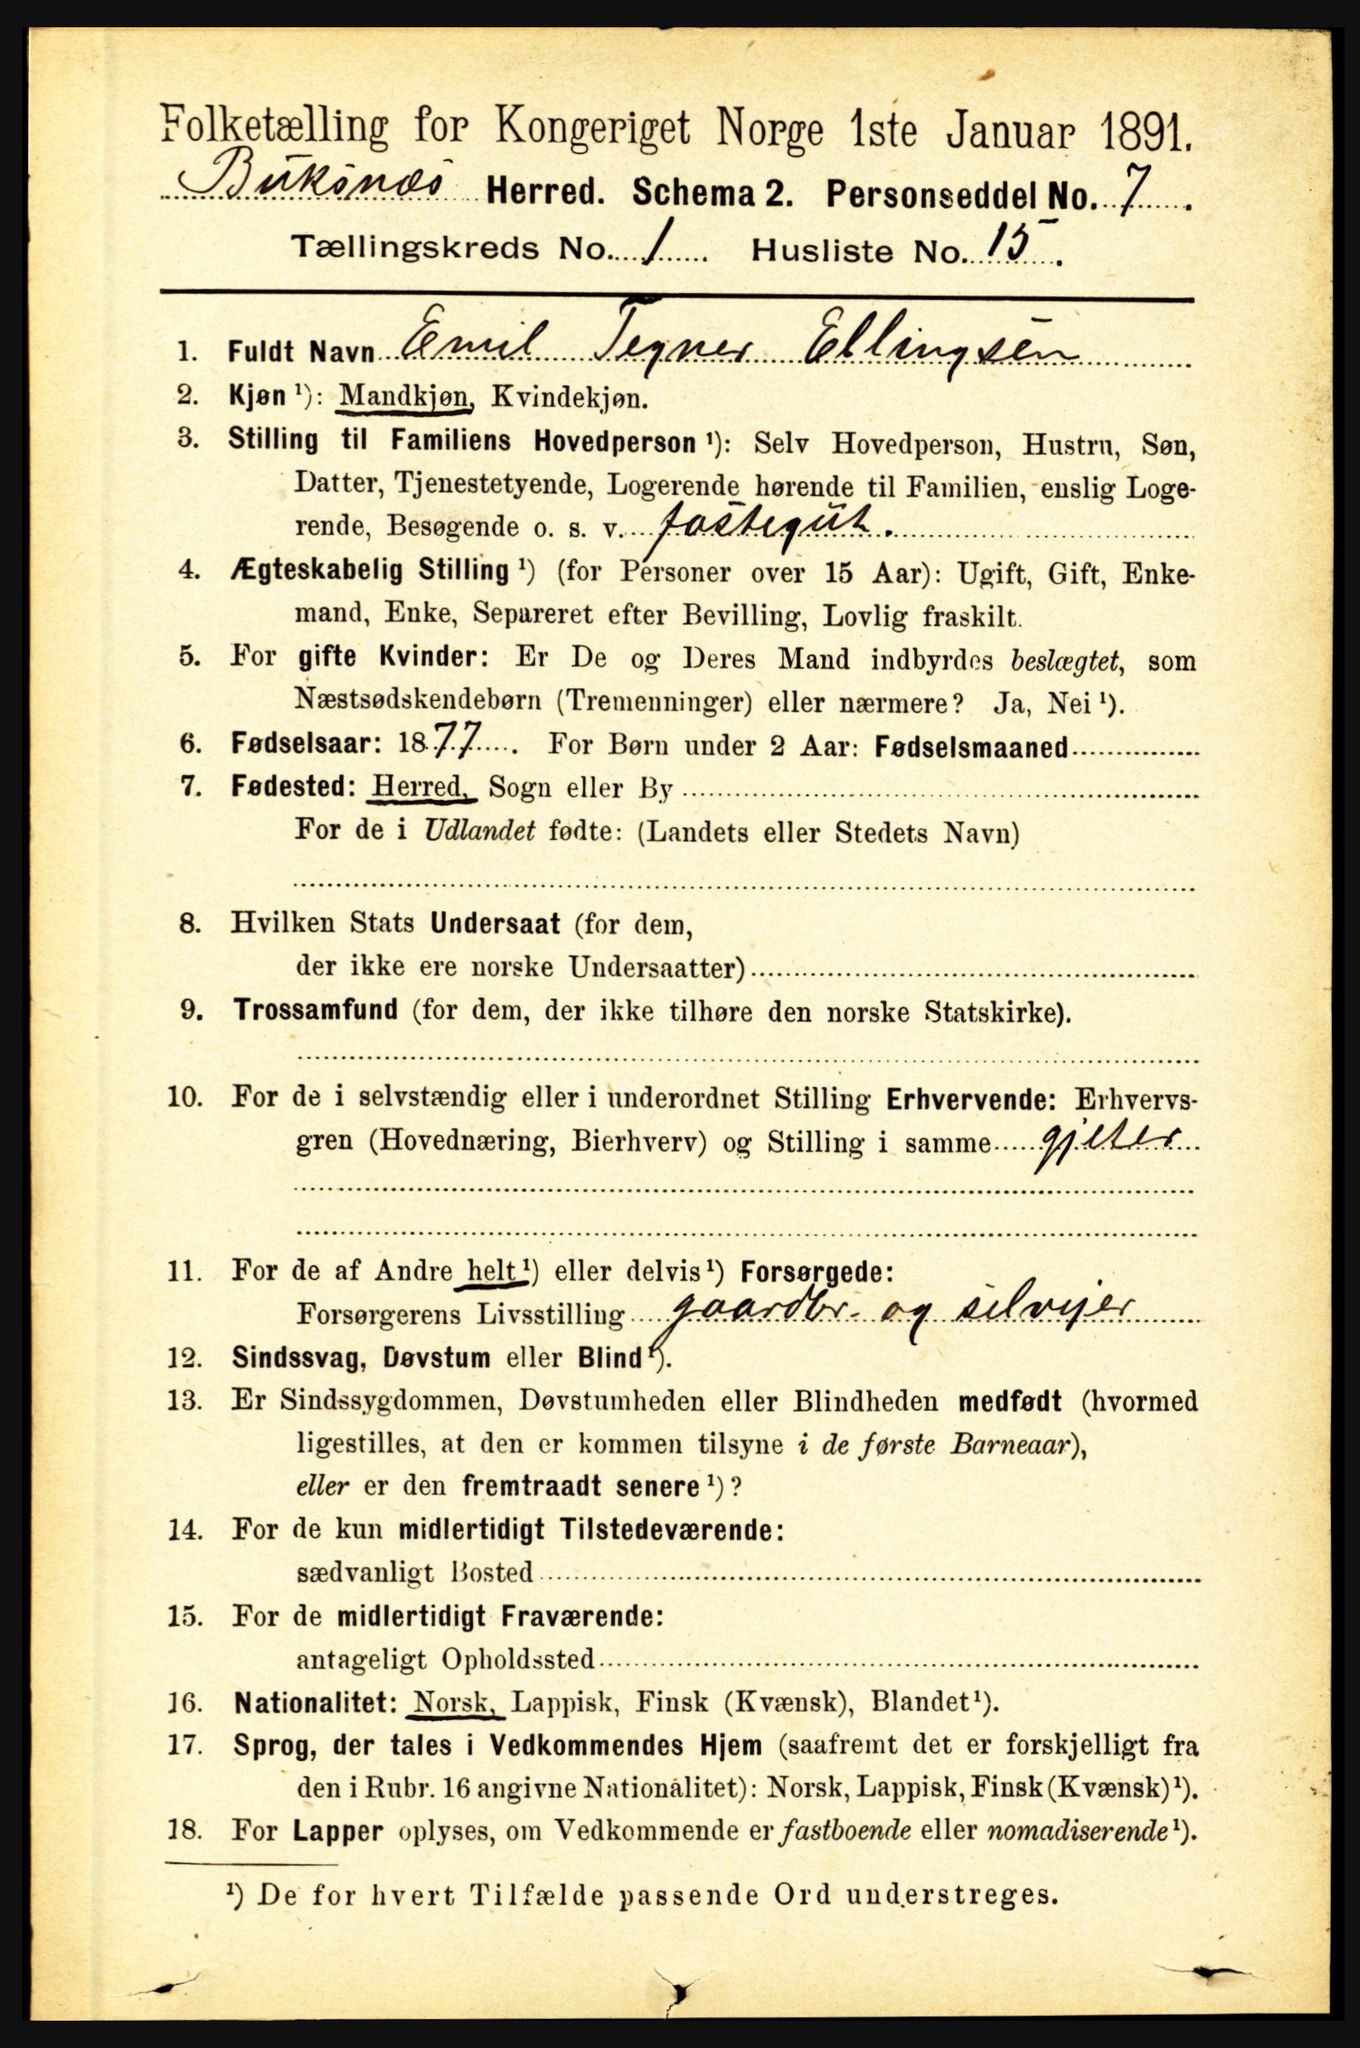 Folketælling for Kongeriget Norge 1ste Januar 1891.
Buksnæs Herred. Schema 2. Personseddel No. 7.
Tællingskreds No. 1. Husliste No. 15.
1. Fuldt Navn Emil Tegner Ellingsen
2. Kjøn ¹): Mandkjøn, Kvindekjøn.
3. Stilling til Familiens Hovedperson ¹): Selv Hovedperson, Hustru, Søn,
Datter, Tjenestetyende, Logerende hørende til Familien, enslig Loge-
rende, Besøgende o. s. v. fostegut.
4. Ægteskabelig Stilling ¹) (for Personer over 15 Aar): Ugift, Gift, Enke-
mand, Enke, Separeret efter Bevilling, Lovlig fraskilt.
5. For gifte Kvinder: Er De og Deres Mand indbyrdes beslægtet, som
Næstsødskendebørn (Tremenninger) eller nærmere? Ja, Nei ¹).
6. Fødselsaar: 1877. For Børn under 2 Aar: Fødselsmaaned
7. Fødested: Herred, Sogn eller By
For de i Udlandet fødte: (Landets eller Stedets Navn)
8. Hvilken Stats Undersaat (for dem,
der ikke ere norske Undersaatter)
9. Trossamfund (for dem, der ikke tilhøre den norske Statskirke).
10. For de i selvstændig eller i underordnet Stilling Erhvervende: Erhvervs-
gren (Hovednæring, Bierhverv) og Stilling i samme gjeter
11. For de af Andre helt ¹) eller delvis ¹) Forsørgede:
Forsørgerens Livsstilling gaardbr. og selveier
12. Sindssvag, Døvstum eller Blind ¹).
13. Er Sindssygdommen, Døvstumheden eller Blindheden medfødt (hvormed
ligestilles, at den er kommen tilsyne i de første Barneaar),
eller er den fremtraadt senere ¹)?
14. For de kun midlertidigt Tilstedeværende:
sædvanligt Bosted
15. For de midlertidigt Fraværende:
antageligt Opholdssted
16. Nationalitet: Norsk, Lappisk, Finsk (Kvænsk), Blandet ¹).
17. Sprog, der tales i Vedkommendes Hjem (saafremt det er forskjelligt fra
den i Rubr. 16 angivne Nationalitet): Norsk, Lappisk, Finsk (Kvænsk) ¹).
18. For Lapper oplyses, om Vedkommende er fastboende eller nomadiserende ¹).
¹) De for hvert Tilfælde passende Ord understreges.